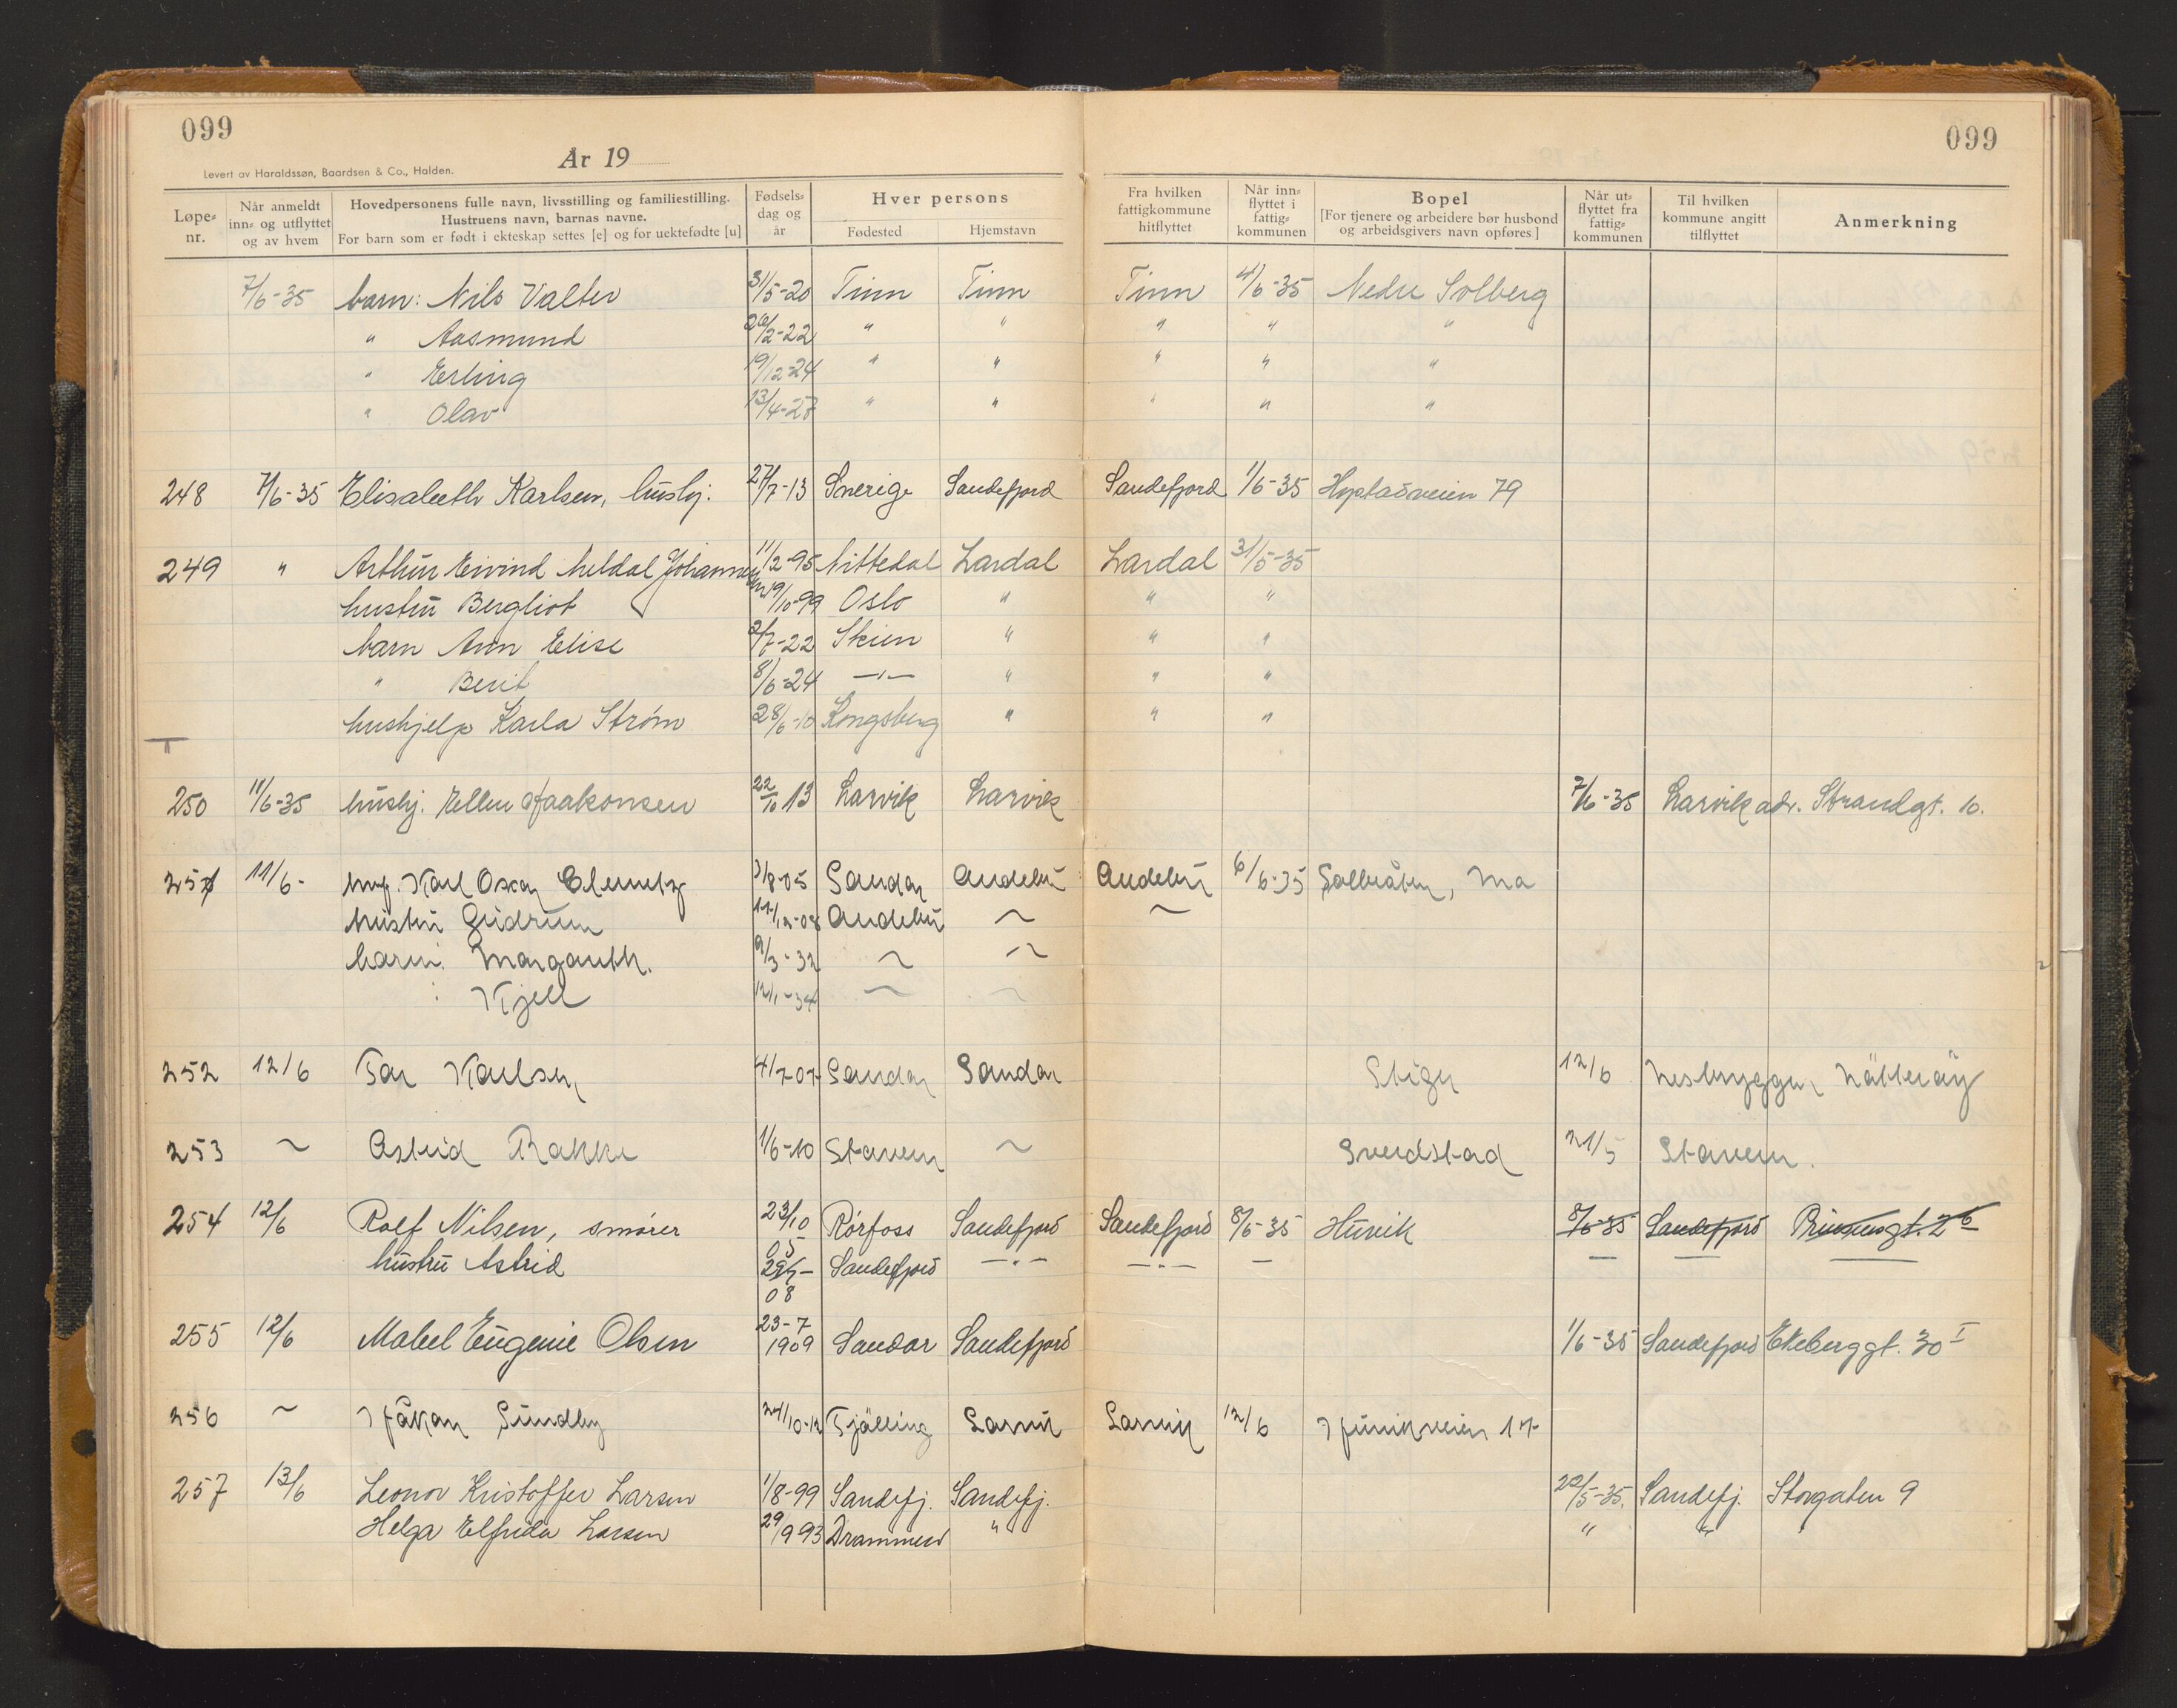 099
099
År 19
Levert av Haraldssøn, Baardsen & Co., Halden.
Løpe-nr. | Når anmeldt inn- og utflyttet og av hvem | Hovedpersonens fulle navn, livsstilling og familiestilling. Hustruens navn, barnas navne. For barn som er født i ekteskap settes [e] og for uektefødte [u] | Fødsels-dag og år | Hver persons Fødested | Hjemstavn | Fra hvilken fattigkommune hitflyttet | Når inn-flyttet i fattig-kommunen | Bopel [For tjenere og arbeidere bør husbond og arbeidsgivers navn opføres] | Når ut-flyttet fra fattig-kommunen | Til hvilken kommune angitt tilflyttet | Anmerkning
7/6-35 barn: Nils Valter 31/5-20 Tinn Tinn Tinn 4/6-35 Nedre Solberg
" Aasmund 26/2-22 " " " " "
" Erling 19/12-24 " " " " "
" Olav 13/4-27 " " " " "
248 7/6-35 Elisabeth Karlsen, hushj. 27/7-13 Sverige Sandefjord Sandefjord 1/6-35 79
249 " Arthur Eivind Meldal Johannesen 11/2-95 Nittedal Lardal Lardal 31/5-35
hustru Bergliot 19/10-99 Oslo " " "
barn Ann Elise 2/7-22 Skien " " "
" Berit 8/6-24 —"— " " "
hushjelp Karla Strøm 28/6-10 Kongsberg " " "
250 11/6-35 hushj. Ellen Haakonsen 22/10 13 Larvik Larvik 7/6-35 Larvik adr. Strandgt. 10.
251 11/6- Karl Oskar 3/8-05 Sandar Andebu Andebu 6/6-35
hustru Gudrun 11/12-08 Andebu ~ ~
barn: Margareth. 9/3-32 ~ ~
: Kjell 12/1-34 ~ ~
252 12/6 Tor Karlsen 4/7-07 Sandar Sandar 12/6 Nesbryggen Nötteröy
253 ~ Astrid Bakke 1/6-10 Stavern ~ 21/5 Stavern.
254 12/6 Rolf Nilsen, smører 23/10 05 Rørfoss Sandefjord Sandefjord 8/6-35 Huvik 8/6-35 Sandefjord Prinsensgt. 26
hustru Astrid 08 Sandefjord —"— —"— — — — —
255 12/6 Mabel Eugenie Olsen 23-7 1909 Sandar Sandefjord 1/6-35 Sandefjord Ekeberggt. 30 I
256 ~ Håkon Sundby 24/10-12 Tjölling Larvik Larvik 12/6 Hunikveien 17
257 13/6 Leonor Kristoffer Larsen 1/8-99 Sandefj. Sandefj. 20/5-35. Sandefj. Storgaten 9
Helga Elfrida Larsen 29/9 93 Drammen " " " "